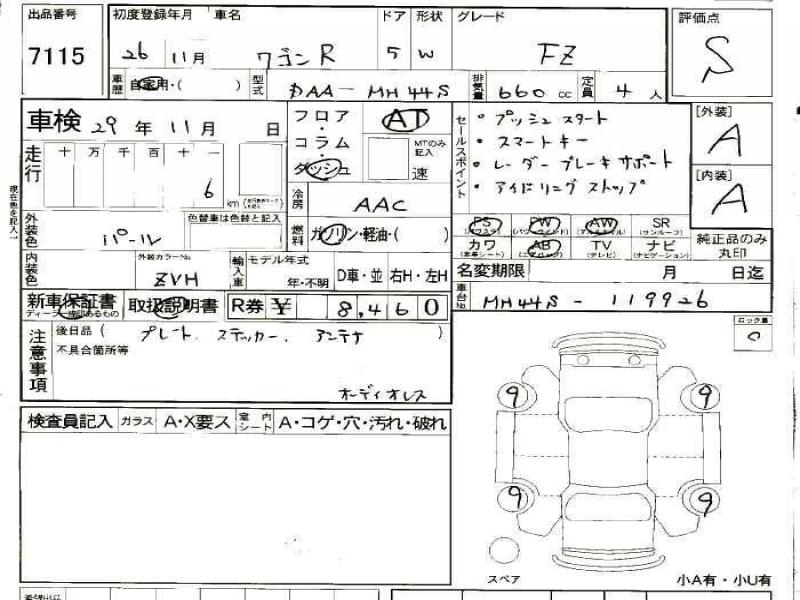 出品番号 初度登録年月 車名 ドア 形状 グレード 評価点
7115 26 11月 ワゴンR 5 W FZ S
車歴 自家用・( ) 型式 DAA-MH44S 排気量 660 cc 定員 4 人
車検 29 年 11 月 日
フロア・コラム・ダッシュ AT MTのみ記入 速
セールスポイント
・プッシュスタート
・スマートキー
・レーダーブレーキサポート
・アイドリングストップ
[外装] A
[内装] A
走行 十 万 千 百 十 一
6 km
冷房 AAC
外装色 パール 色替車は色替と記入
燃料 ガソリン・軽油・( )
PS PW AW SR
(パワステ) (パワーウィンド) (アルミホイル) (サンルーフ)
カワ AB TV ナビ
(本革シート) (エアバッグ) (テレビ) (ナビゲーション)
純正品のみ丸印
内装色 外装カラーNo. ZVH
輸入車 モデル年式 年・不明 D車・並 右H・左H
名変期限 月 日迄
新車保証書 取扱説明書 R券 ¥ 8,460
車台No. MH44S-119926
注意事項 後日品( プレート. ステッカー. アンテナ )
不具合箇所等
オーディオレス
ロック 0
検査員記入 ガラス A・X要ス 室内シート A・コゲ・穴・汚れ・破れ
9 9
9 9
スペア 小A有・小U有
現在色を記入
希望出品